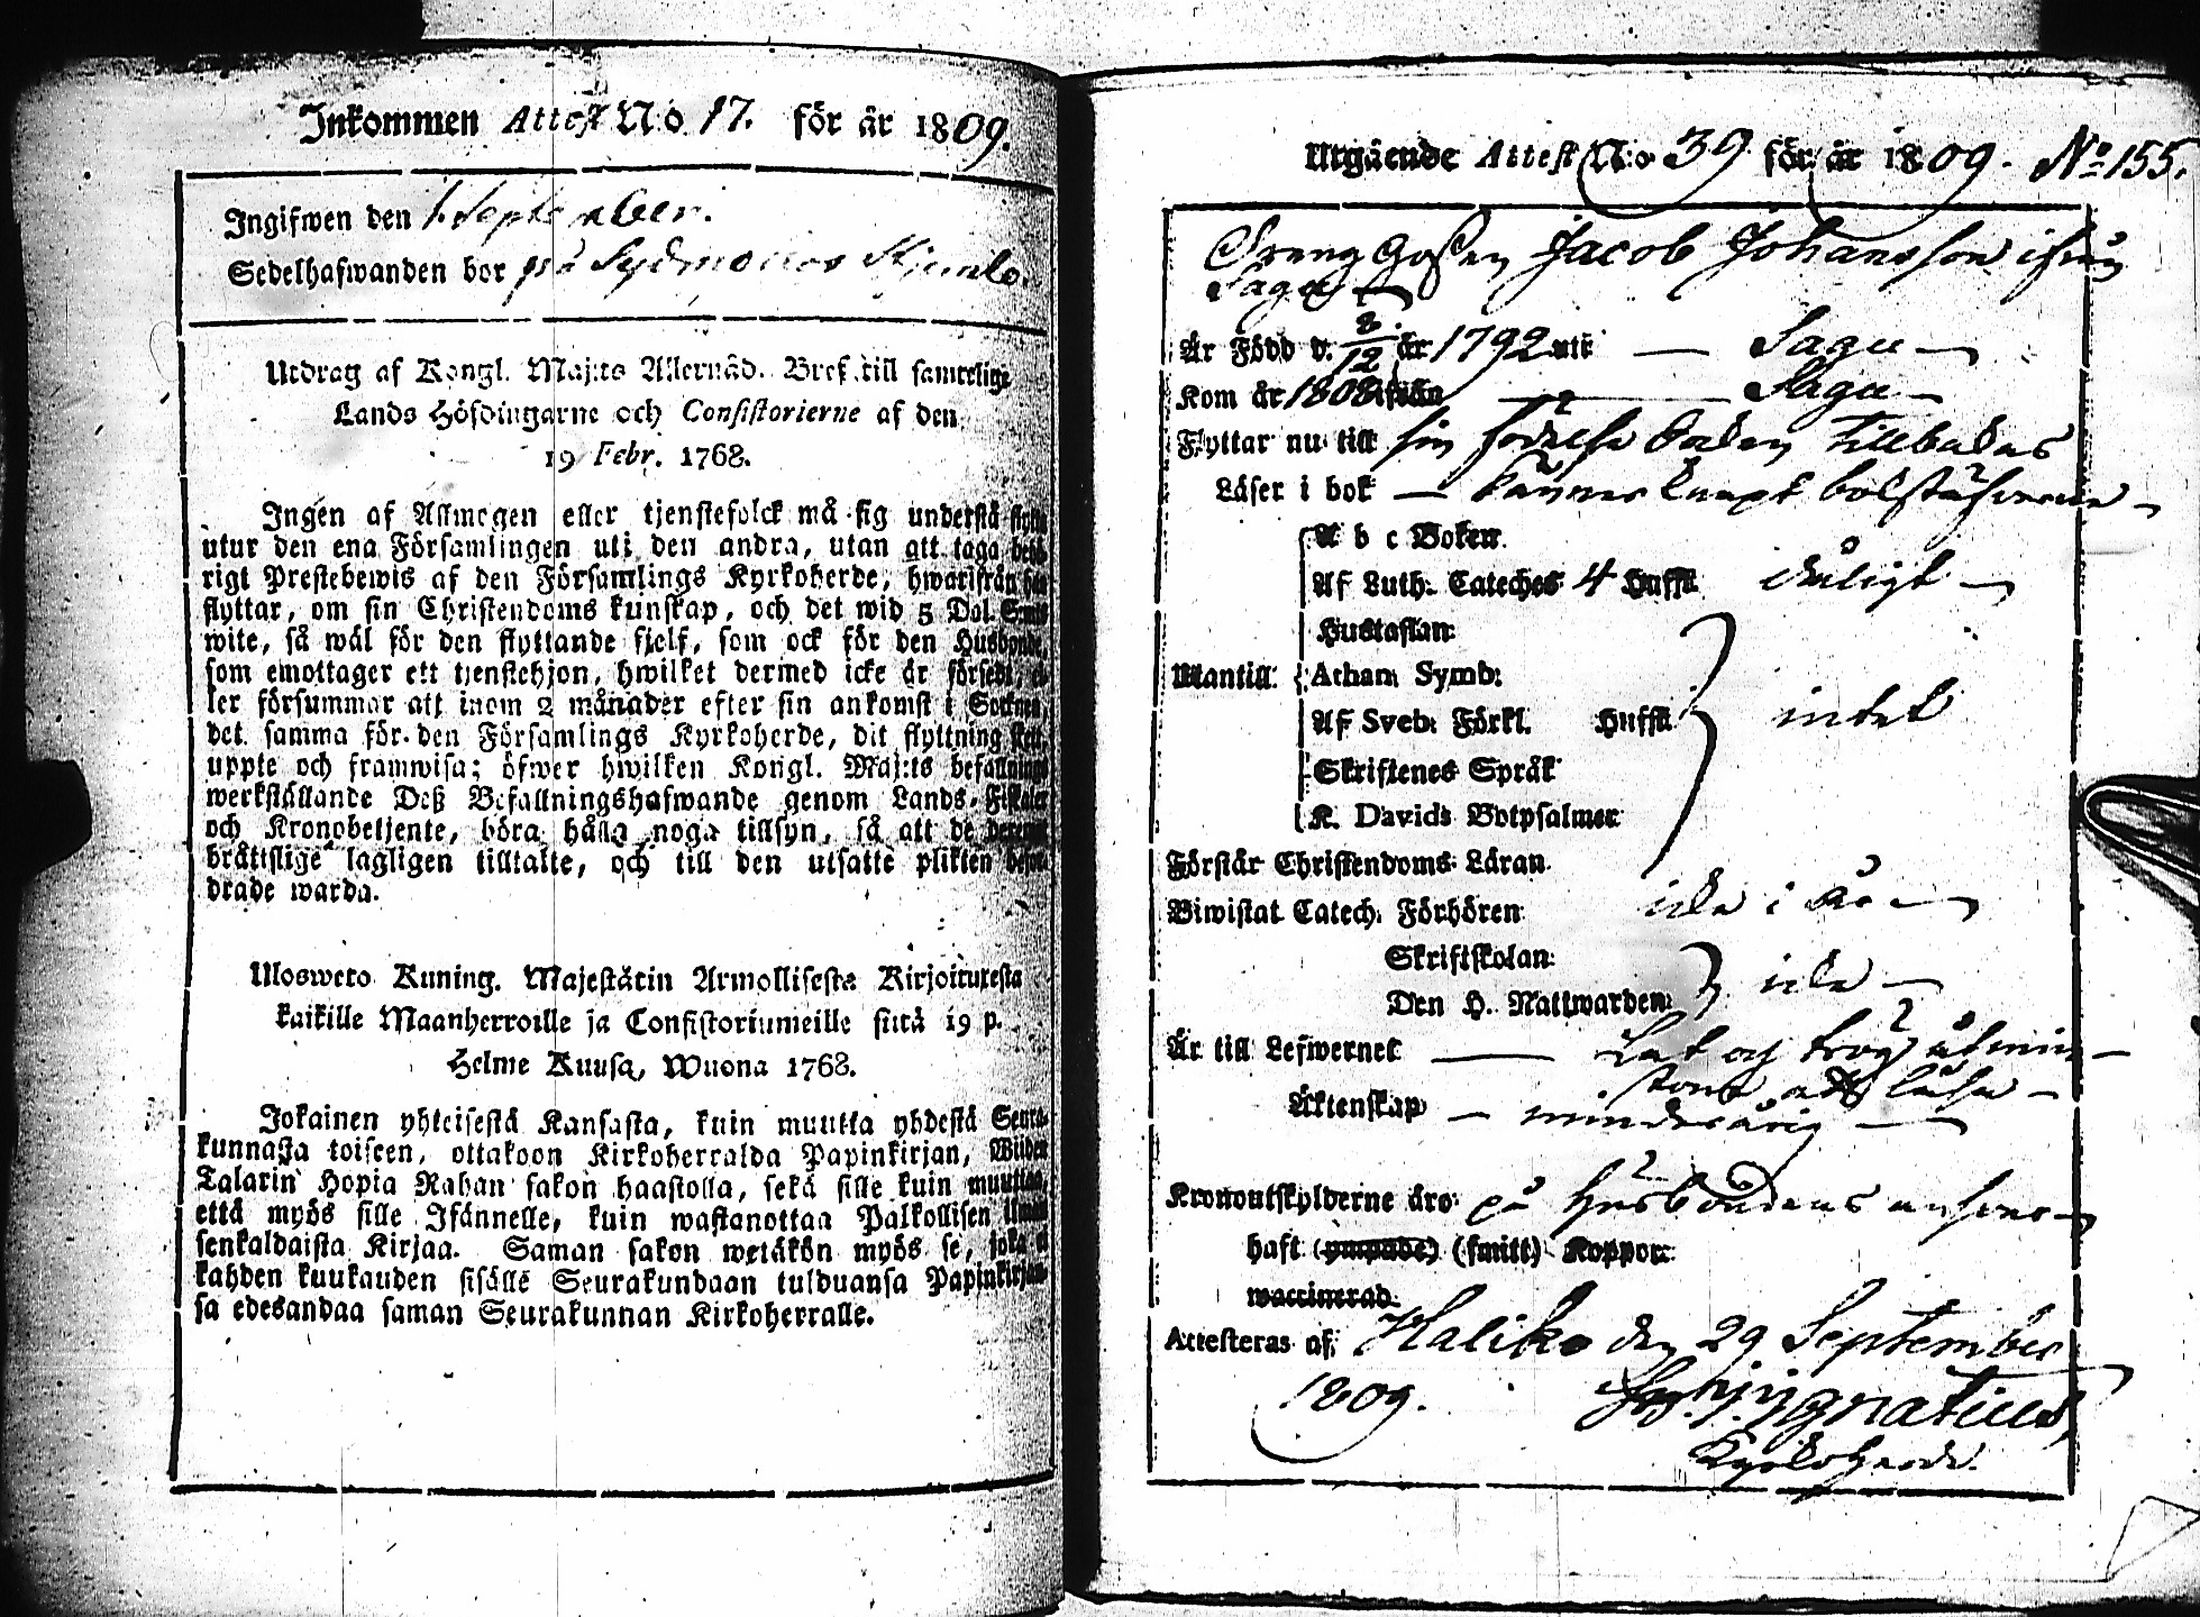 Inkommen Attest N:o 17. för år 1809.
Ingifwen den 1. September.
Sedelhafwanden bor på
Utdrag af Kongl. Maj:ts Allernåd. Bref till samtelige
Lands Höfdingarne och Consistorierne af den
19 Febr. 1768.
Ingen af Allmogen eller tjenstefolck må sig understå flytta
utur den ena Församlingen uti den andra, utan att taga behö-
rigt Prestebewis af den Församlings Kyrkoherde, hwarifrån han
flyttar, om sin Christendoms kunskap, och det wid 5 Dal. Smts
wite, så wäl för den flyttande sjelf, som ock för den Husbonde,
som emottager ett tjenstehjon, hwilket dermed icke är försedt, el-
ler försummar att inom 2 månader efter sin ankomst i Socknen,
det samma för den Församlings Kyrkoherde, dit flyttning skett,
uppte och framwisa; öfwer hwilken Kongl. Maj:ts befallnings
werkställande Deß Befallningshafwande genom Lands-Fiskaler
och Kronobetjente, böra hålla noga tillsyn, så att de deremot
bråttslige lagligen tilltalte, och till den utsatte plikten befor-
drade warda.
Ulosweto Kuning. Majestätin Armollisesta Kirjoituxesta
kaikille Maanherroille ja Consistoriumeille siitä 19 p.
Helme Kuusa, Wuona 1768.
Jokainen yhteisestä Kansasta, kuin muutta yhdestä Seura-
kunnasta toiseen, ottakoon Kirkoherralda Papinkirjan, Wiiden
Talarin Hopia Rahan sakon haastolla, sekä sille kuin muuttaa,
että myös sille Isännelle, kuin wastanottaa Palkollisen ilman
senkaldaista Kirjaa. Saman sakon wetäkön myös se, joka ei
kahden kuukauden sisälle Seurakundaan tulduansa Papinkirjan-
sa edesandaa saman Seurakunnan Kirkoherralle.
Utgäende Attest N:o 39 för år 1809. No 155.
Dreng Goßen Jacob Johansson ifrån
Sagu
Är Född d. 3/12 år 1792 uti — Sagu —
Kom år 1808 ifrån — Sagu —
Flyttar nu till sin födelse orten tillbakas
Läser i bok — känner knapt bokstäfverne —
A b c Boken
Af Luth: Cateches 4 Hufst. dåligt —
Hustaflan:
Utantill: Athan: Symb:
Af Sveb: Förkl. Hufst. intet
Skriftenes Språk
K. Davids Botpsalmer
Förstår Christendoms Läran
Biwistat Catech. Förhören: icke i år —
Skriftskolan:
Den H. Nattwarden: icke —
Är till Lefwernet — Lat och trög åtmin-
stone att läsa —
Äktenskap — minderårig —
Kronoutskylderne äro: på Husbondens ansvar —
haft (ympade) (smitt) Koppor:
waccinerad.
Attesteras af: Haliko den 29 September
1809. Ignatius,
Kyrkoherde.